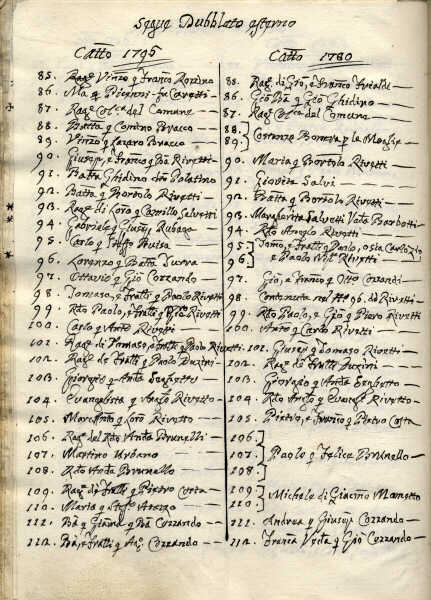 Segue Dubblato esterno
Catto 1795
85. Rag.e Vinzo q Franco Rossino
86. Ma q Caretti
87. Rag.e del Comune
88. Batta q Comino Bonacco
89. Vinzo q Lazaro Bonacco
90. Giusepe, e Franco q Bta Rivetti
91. Batta Ghidino Polatino
92. Batta q Bortolo Rivetti
93. Rag.e di Loro q Camillo Salvetti
94. Gabriele q Giusepe Rubaga
95. Carlo q
96. Lorenzo q Batta Turra
97. Ottavio q Gio Cozzando
98. Tomaso, e Fratti q Paolo Rivetti
99. Rdo Paolo, e Fratti q Rivetti
100. Carlo q Anto Rivetti
101. Rag.e di Tomaso, e Fratti q Paolo Rivetti
102. Rag.e de Fratti q Paolo Duzini
103. Giorgio q Anto
104. Evangelista q Anglo Rivetto
105. Marc Anto q Loro Rivetto
106. Rag.e del Rdo Anto Brunelli
107. Martino Urbano
108. Rdo Anto Brunello
109. Rag.e de Fratti q Pietro Costa
110. Maria q
111. Ba q Cozzando
112. Ba, e Fratti q Cozzando
Catto 1780
85. Rag.e di Gio, e Franco
86. Gio Bta q Gio Ghidino
87. Rag.e del Comune
88.
89. Costanzo Bonera p la Moglie
90. Maria q Bortolo Rivetti
91. Giovita Salvi
92. Batta q Bortolo Rivetti
93. Margarita Salvetti Barbotti
94. Rdo Anglo Rivetti
95. Tomo, e Fratti q Paolo, o sia Carlo
96. e Paolo Rivetti
97. Gio, e Franco q Otto Cozzandi
98. Contenuta nel No 96. de Rivetti
99. Rdo Paolo, e Gio q Piero Rivetti
100. Anto q Carlo Rivetti
101. Giusepe q Tomaso Rivetti
102. Rag.e de Fratti Duzini
103. Giorgio q Anto
104. Rdo Anglo q Rivetti
105. Pietro, e Franco q Pietro Costa
106.
107. Paolo q Felice Brunello
108.
109. Michele di Giacino
110.
111. Andrea q Giusepe Cozzando
112. Franca q Gio Cozzando